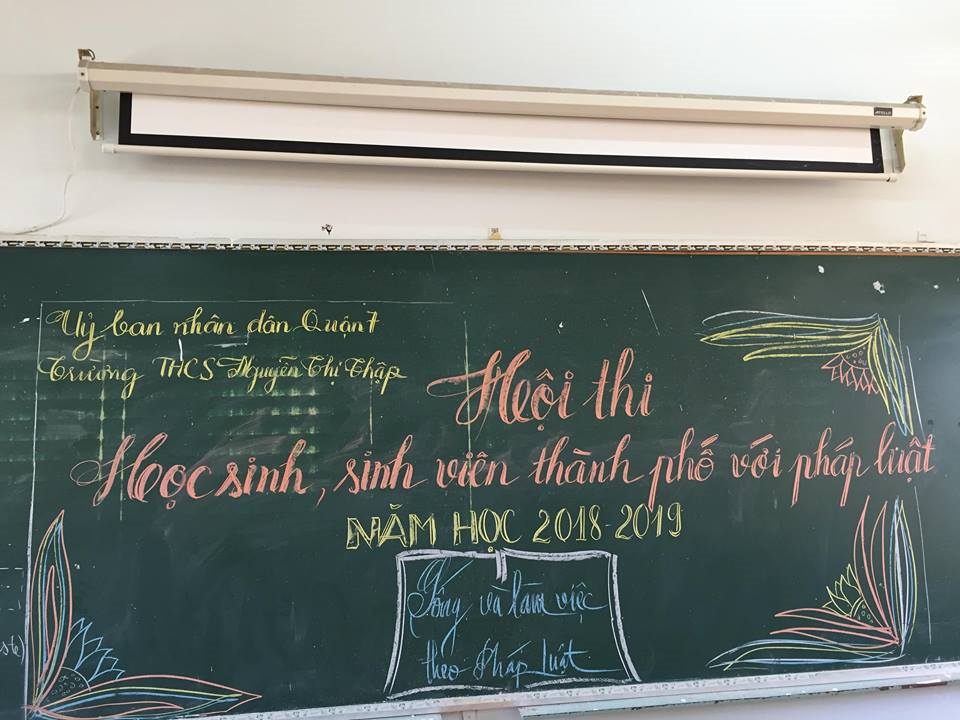 Uỷ ban nhân dân Quận 7
Trường THCS Nguyễn Thị Thập
Hội thi
Học sinh, sinh viên thành phố với pháp luật
NĂM HỌC 2018-2019
Sống và làm việc
theo Pháp Luật
APOLLO